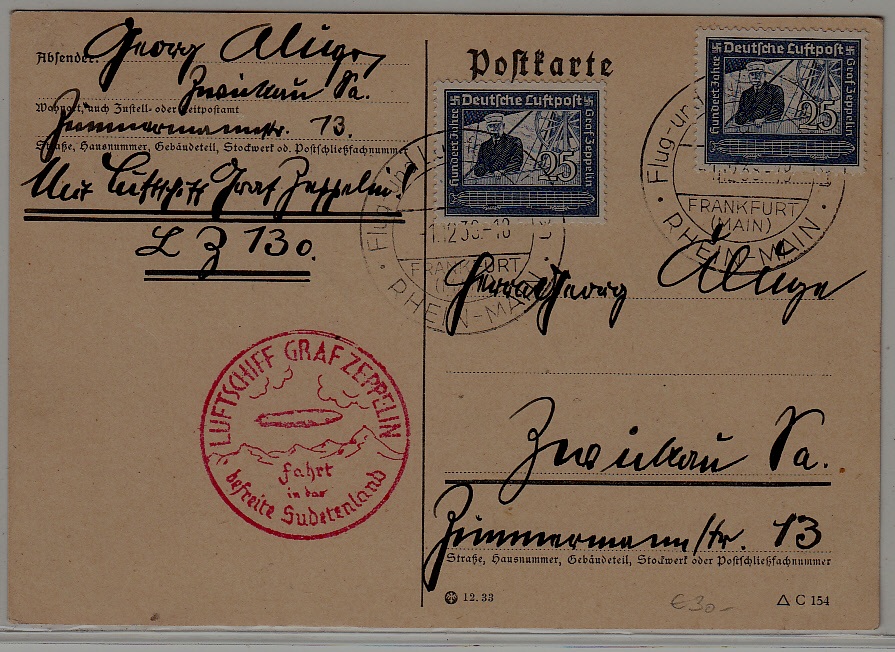 Absender: Georg Aluge,
Zwickau Sa.
Wohnort, auch Zustell- oder Leitpostamt
Zimmermannstr. 13.
Straße, Hausnummer, Gebäudeteil, Stockwerk od. Postschließfachnummer
Mit Luftschiff Graf Zeppelin!
LZ 130.
Postkarte
Deutsche Luftpost
Hundert Jahre
Graf Zeppelin
25
Deutsche Luftpost
Hundert Jahre
Graf Zeppelin
25
Flug- und
-1.12.38.-18
FRANKFURT
(MAIN)
RHEIN-MAIN
Flug- un
-1.12.38.-18
FRANKFURT
(MAIN)
RHEIN-MAIN
Herrn Georg Aluge
Zwickau Sa.
Zimmermannstr. 13
Straße, Hausnummer, Gebäudeteil, Stockwerk oder Postschließfachnummer
LUFTSCHIFF GRAF ZEPPELIN
Fahrt
in das
befreite Sudetenland
12.33
€30-
C 154